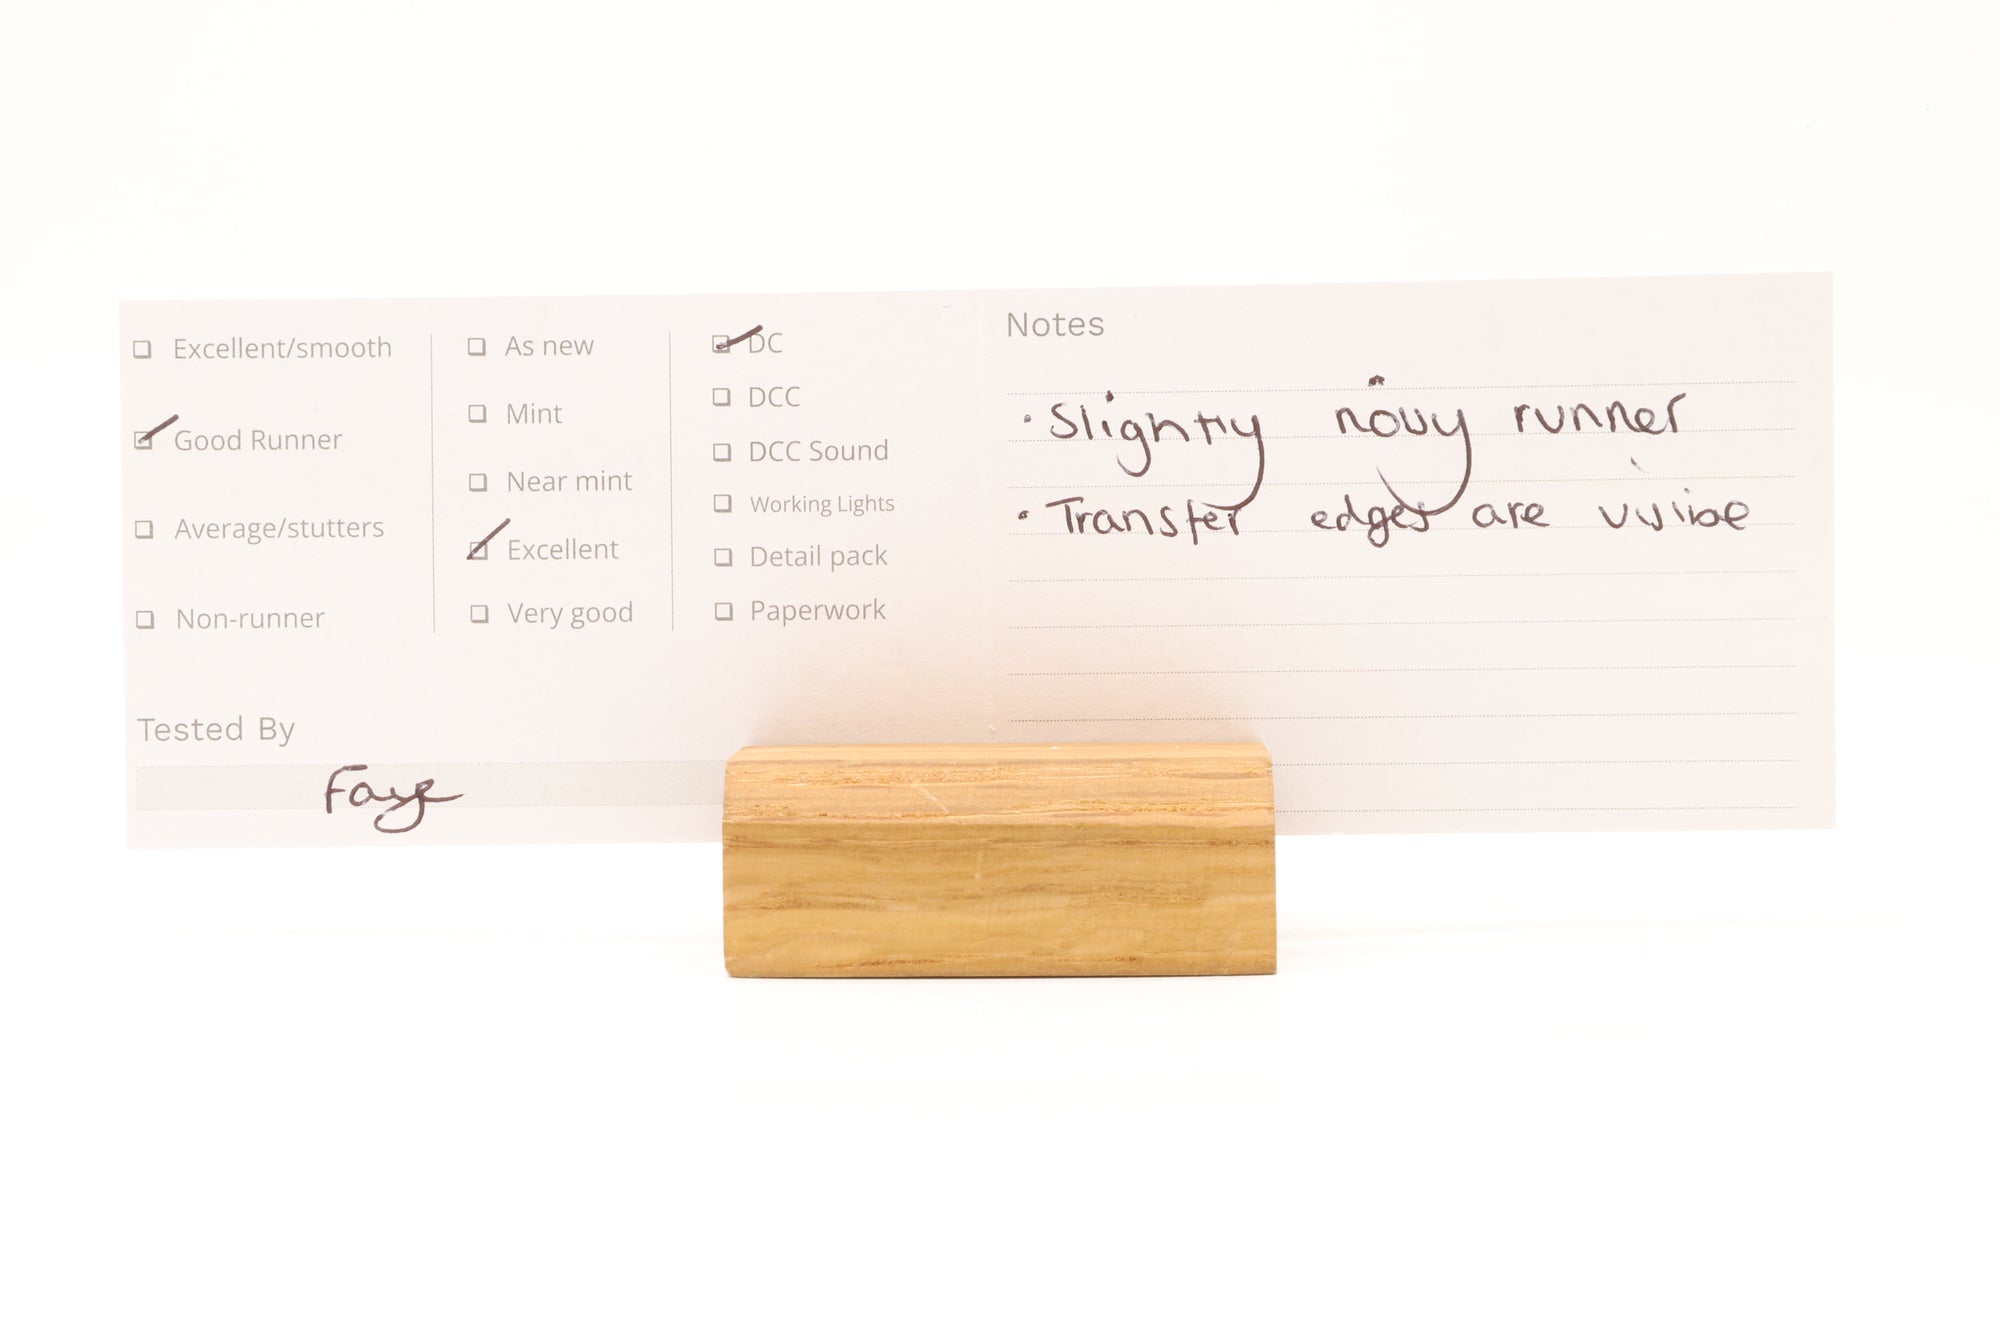 Excellent/smooth
Good Runner
Average/stutters
Non-runner
As new
Mint
Near mint
Excellent
Very good
DC
DCC
DCC Sound
Working Lights
Detail pack
Paperwork
Tested By
Faye
Notes
· Slightly noisy runner
· Transfer edges are visible